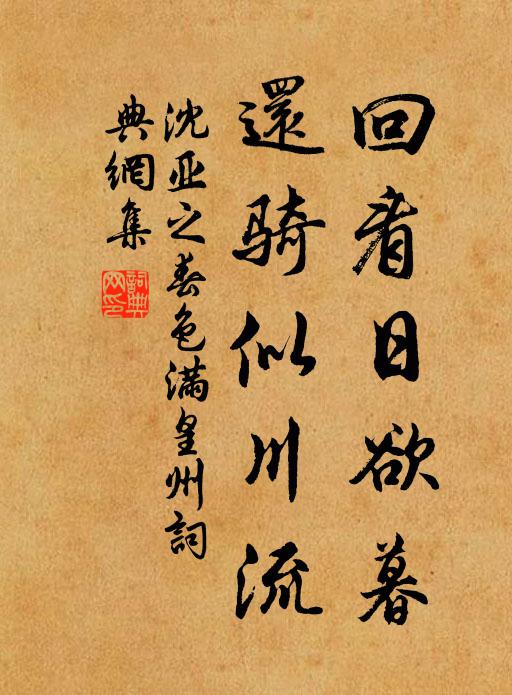 回看日欲暮
還骑似川流
沈亚之春色滿皇州詞
典網集
詞典网印